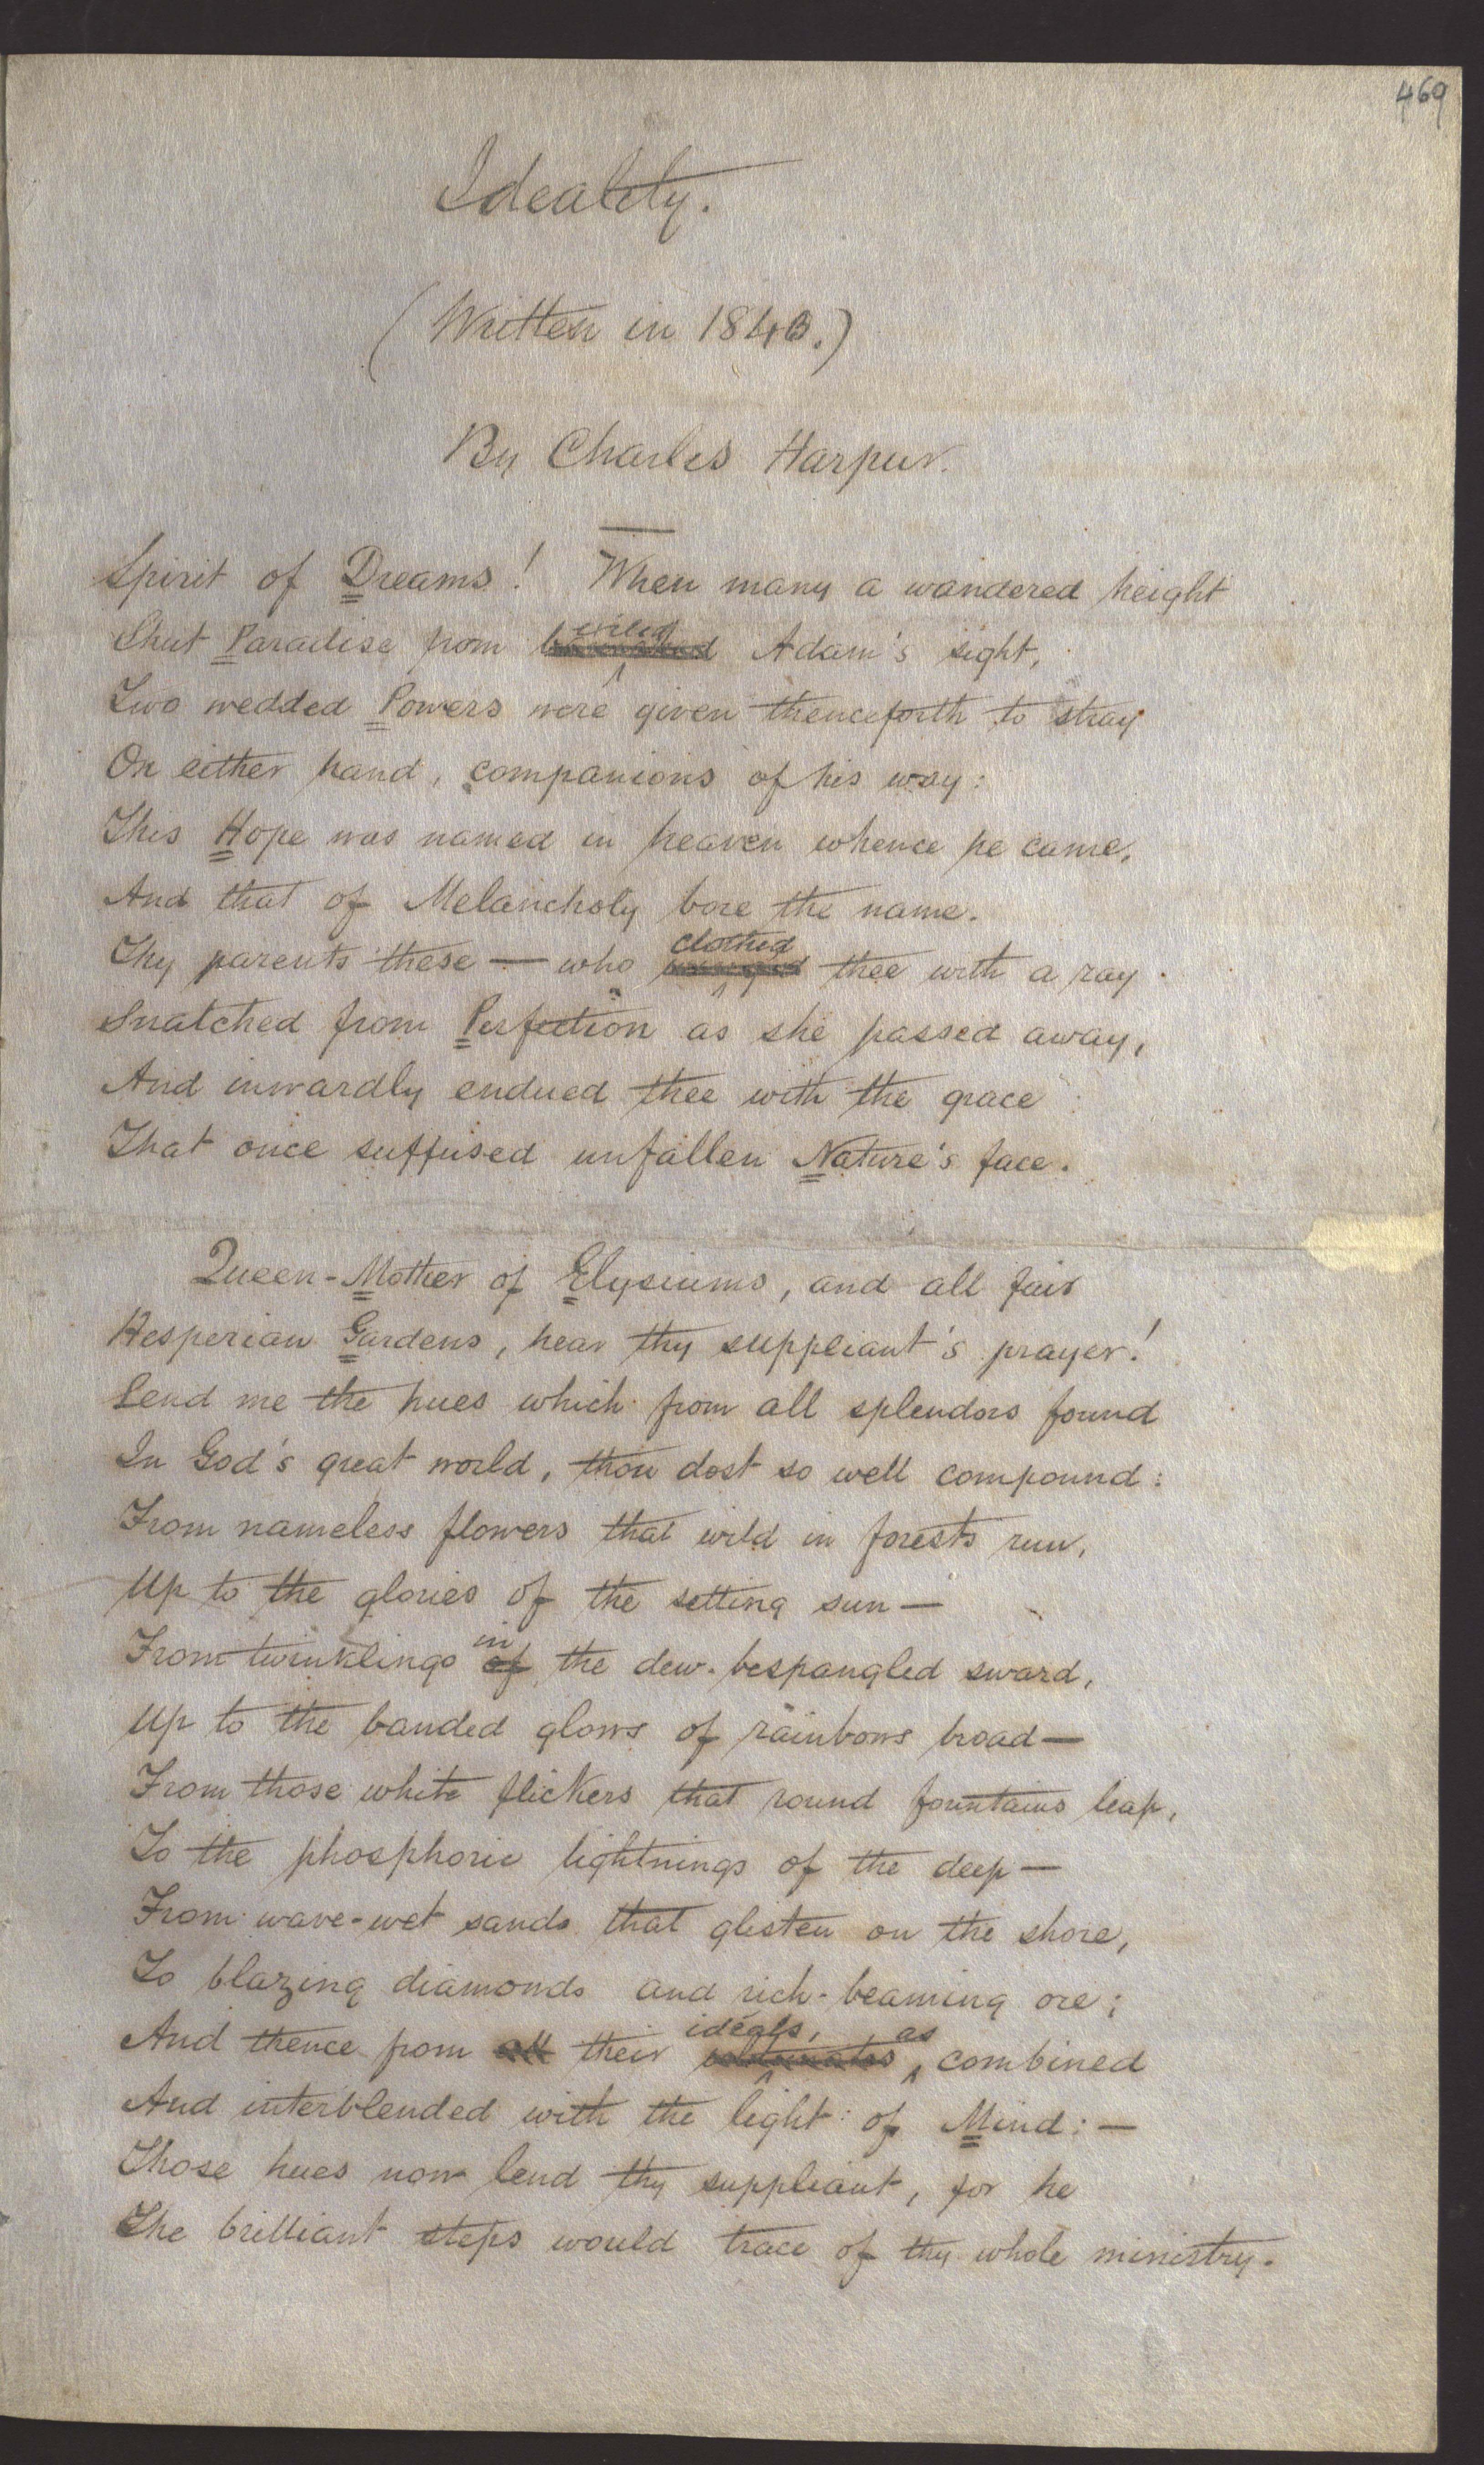 469
Ideality.
(Written in 1843.)
By Charles Harpur.
Spirit of Dreams! When many a wandered height
Shut Paradise from exiled Adam's sight,
Two wedded Powers were given thenceforth to stray
On either hand, companions of his way:
This Hope was named in heaven whence he came,
And that of Melancholy bore the name.
Thy parents these — who clothed thee with a ray
Snatched from Perfection as she passed away,
And inwardly endued thee with the grace
That once suffused unfallen Nature's face.
Queen-Mother of Elysiums, and all fair
Hesperian Gardens, hear thy suppliant's prayer!
Lend me the hues which from all splendors found
In God's great world, thou dost so well compound:
From nameless flowers that wild in forests run,
Up to the glories of the setting sun—
From twinklings of in the dew-bespangled sward,
Up to the banded glows of rainbows broad—
From those white flickers that round fountains leap,
To the phosphoric lightnings of the deep—
From wave-wet sands that glisten on the shore,
To blazing diamonds and rich-beaming ore;
And thence from all their ideals, as combined
And interblended with the light of Mind:—
Those hues now lend thy suppliant, for he
The brilliant steps would trace of thy whole ministry.